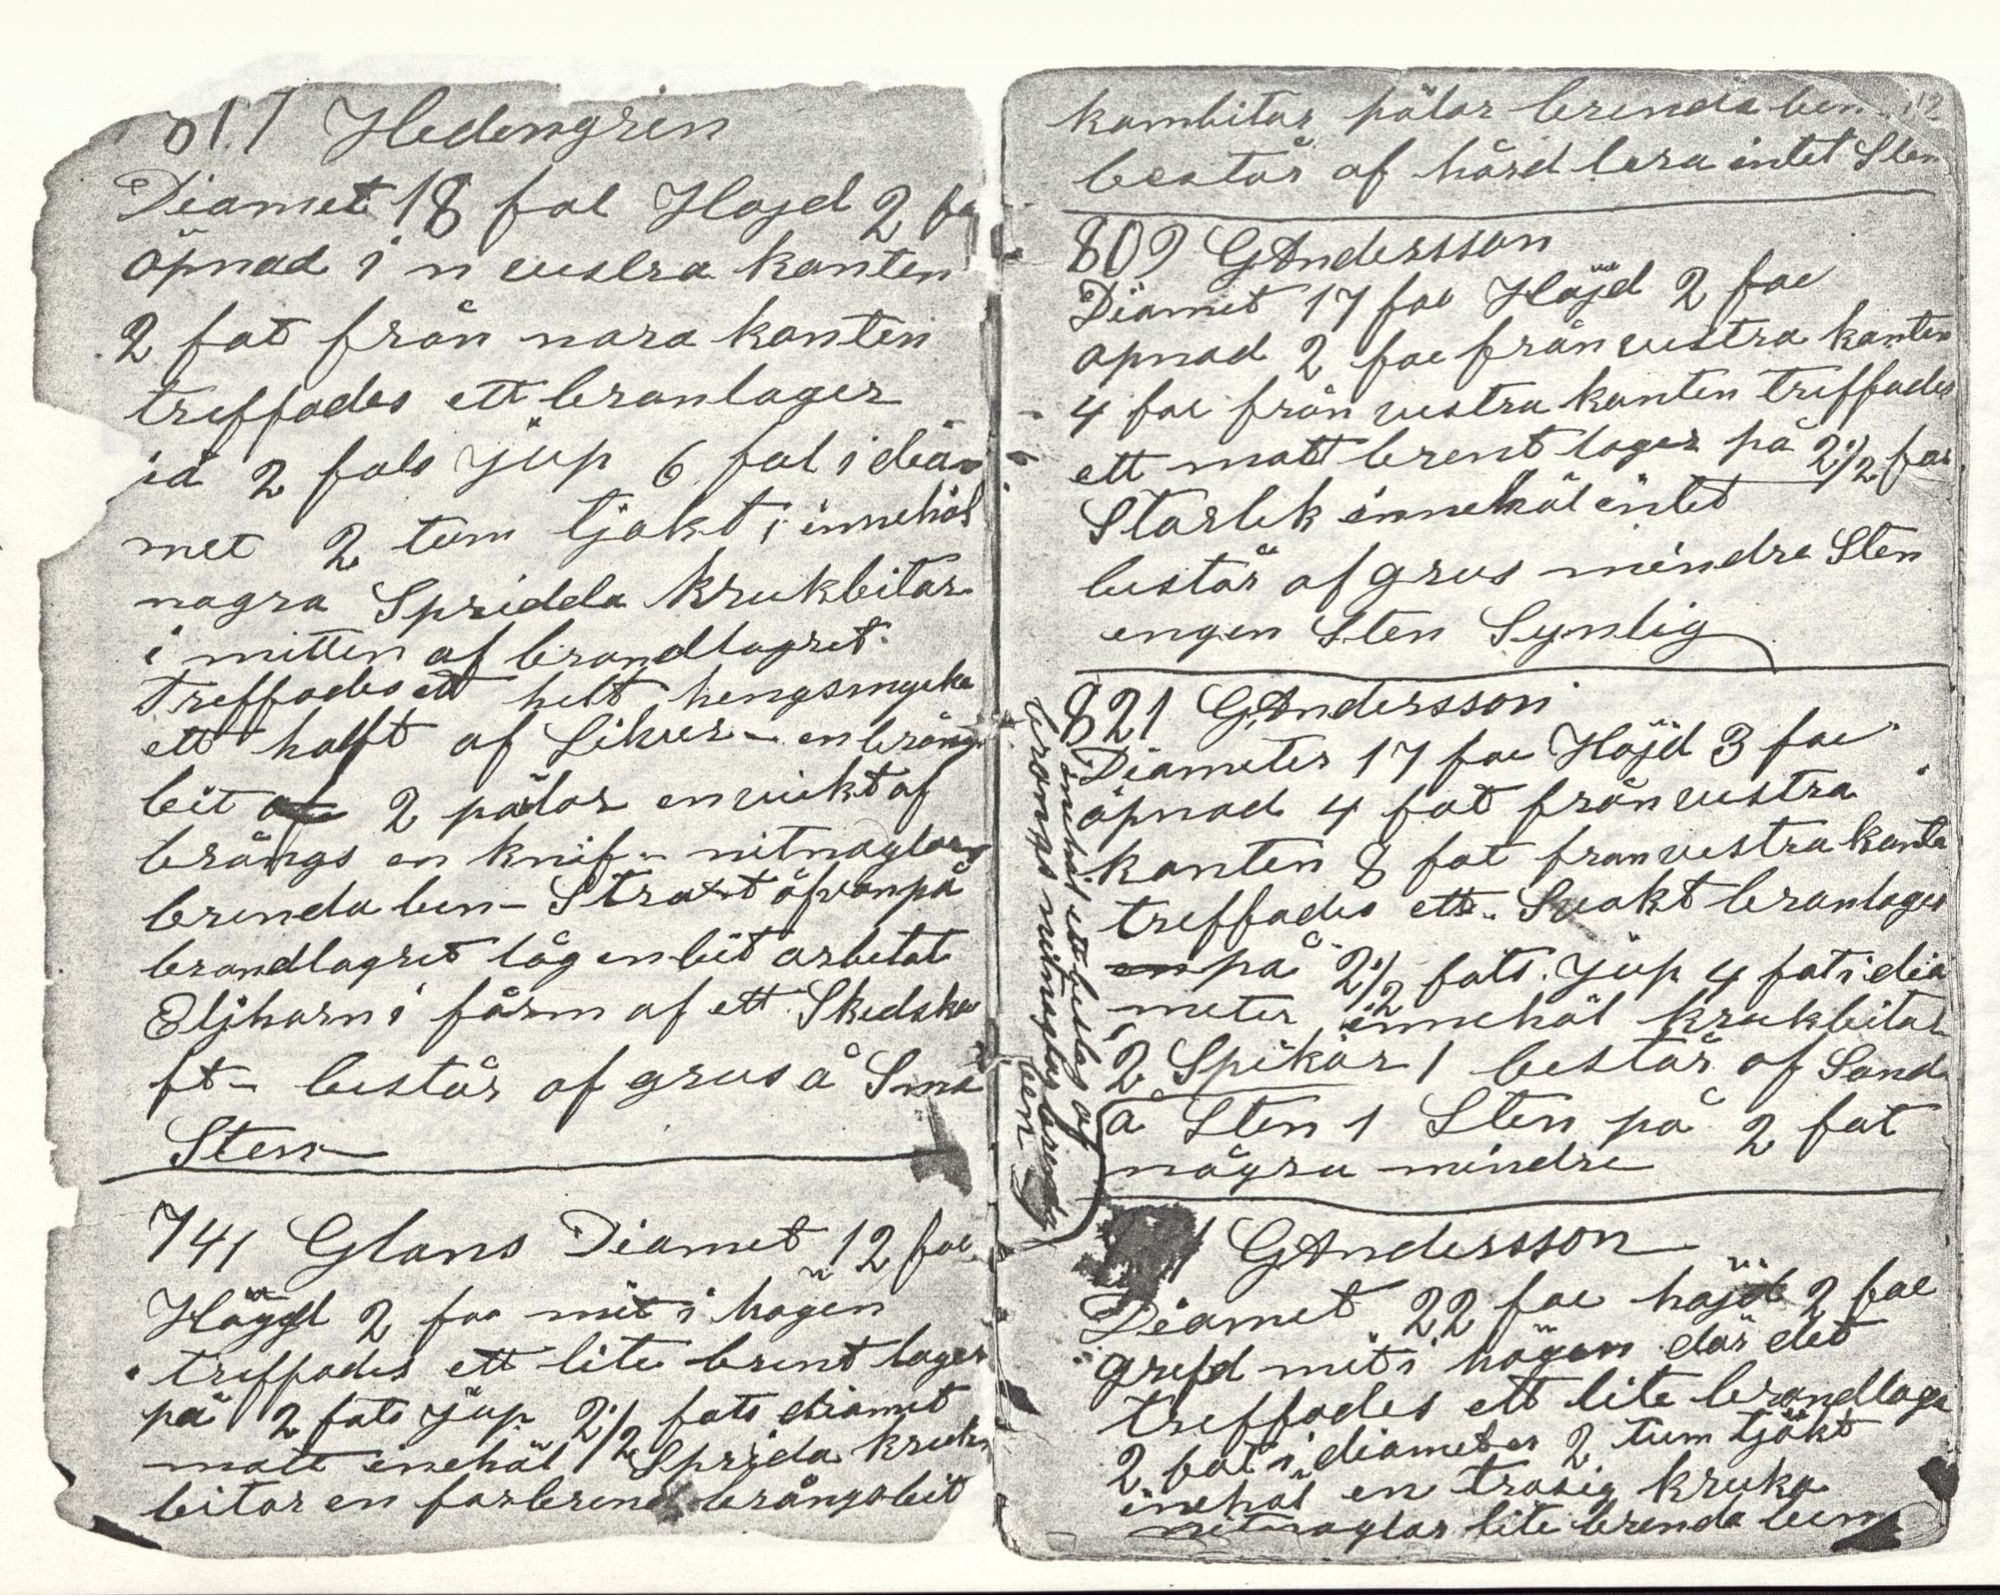 817 Hedengren
Diamet 18 fot Hojd 2 fo
öpnad i n vestra kanten
2 fot från nora kanten
treffades ett branlager
på 2 fots jup 6 fot i dia-
met 2 tum tjokt i innehöl
nogra Spridda krukbitar
i mitten af brandlagret
treffades ett helt hengsmycke
ett halft af Silver - en brång
bit 2 pälar en vickt af
brångs en knif - nitnaglar
brenda ben - Straxt åfvanpå
brandlagret låg en bit arbetat
Eljhorn i fårm af ett Skedska
ft - består af grus å Små
Sten
741 Glans Diamet 12 fot
Höjd 2 fot mit i högen
treffades ett lite brent lager
på 2 fots jup 2 1/2 fots diamet
matt inehöl Sprida kruk
bitar en forbrend brångsbit
kambitar pälar brenda ben 12
består af hård lera intet Sten
809 GAndersson
Diamet 17 fot Höjd 2 fot
opnad 2 fot från vestra kanten
4 fot från vestra kanten treffades
ett matt brent lager på 2 1/2 fot
Storlek innehöl intet
består af grus mindre Sten
engen Sten Synlig
821 GAndersson
Diameter 17 fot Höjd 3 fot
öpnad 4 fot från vestra
kanten 8 fot fran vestra kante
treffades ett Svakt branlager
en på 2 1/2 fots jup 4 fot i dia
meter innehöl krukbitar
2 Spikar 1 består af Sand
å Sten 1 Sten på 2 fot
några mindre
inehöl ett beslag af
brongs nitnaglar brenda
ben
1 GAndersson
Diamet 22 fot höjd 2 fot
grefd mit i högen där det
treffades ett lite brandlage
2 fot i diameter 2 tum tjökt
inehöl en trasig kruka
nitnaglar lite brenda ben